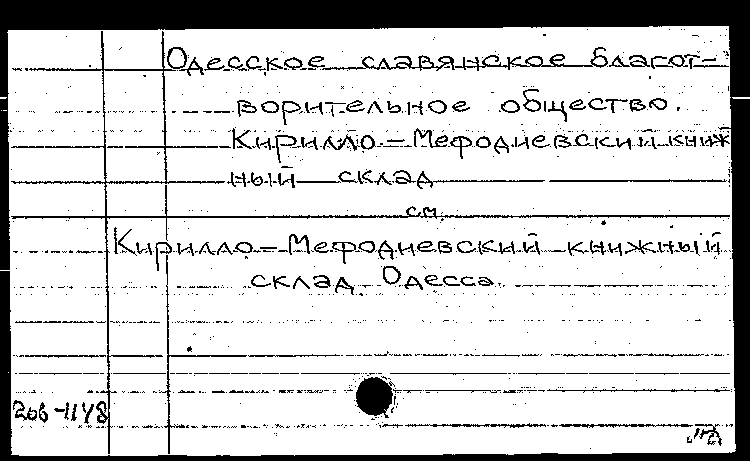 Одесское славянское благот-
ворительное общество.
Кирилло-Мефодиевский книж
ный склад
см.
Кирилло-Мефодиевский книжный
склад. Одесса.